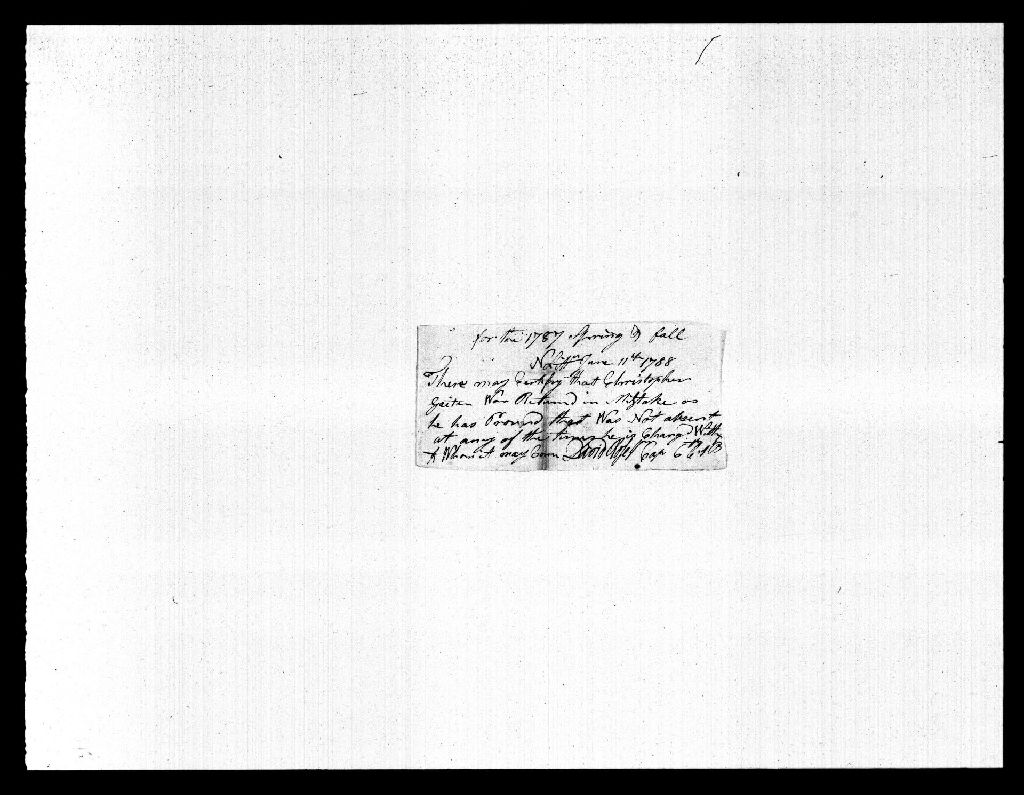 for the 1787 Spring & fall
June 11th 1788
These may Certify that Christopher
Geiten Was Returnd in Mistake as
he has Proovd that Was Not absent
at any of the times he is Chargd With
to Whom it may Conn David Cap 6th B